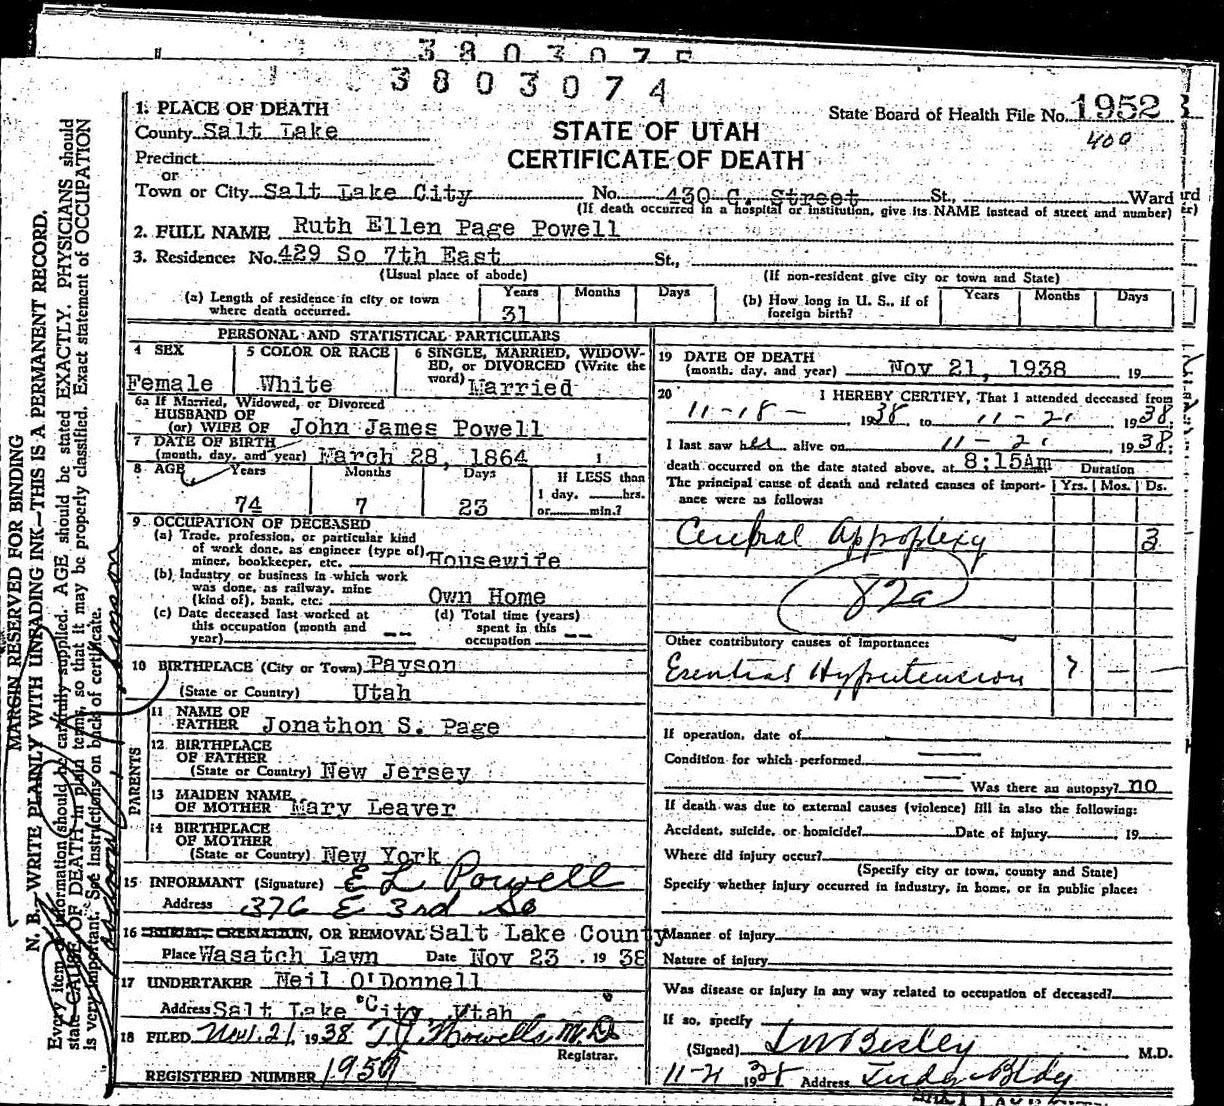 3803075
3803074
1. PLACE OF DEATH
State Board of Health File No. 1952
400
County Salt Lake
STATE OF UTAH
CERTIFICATE OF DEATH
Precinct
or
Town or City Salt Lake City No. 430 C. Street St., Ward
(If death occurred in a hospital or institution, give its NAME instead of street and number)
2. FULL NAME Ruth Ellen Page Powell
3. Residence: No. 429 So 7th East St.,
(Usual place of abode) (If non-resident give city or town and State)
(a) Length of residence in city or town where death occurred. Years 31 Months Days
(b) How long in U. S., if of foreign birth? Years Months Days
PERSONAL AND STATISTICAL PARTICULARS
4 SEX Female
5 COLOR OR RACE White
6 SINGLE, MARRIED, WIDOWED, or DIVORCED (Write the word) Married
6a If Married, Widowed, or Divorced
HUSBAND OF
(or) WIFE OF John James Powell
7 DATE OF BIRTH
(month, day, and year) March 28, 1864
8 AGE Years 74 Months 7 Days 23
If LESS than
1 day, hrs.
or min.?
9. OCCUPATION OF DECEASED
(a) Trade, profession, or particular kind
of work done, as engineer (type of)
miner, bookkeeper, etc. Housewife
(b) Industry or business in which work
was done, as railway, mine
(kind of), bank, etc. Own Home
(c) Date deceased last worked at
this occupation (month and
year) --
(d) Total time (years)
spent in this
occupation --
10 BIRTHPLACE (City or Town) Payson
(State or Country) Utah
PARENTS
11 NAME OF
FATHER Jonathon S. Page
12 BIRTHPLACE
OF FATHER
(State or Country) New Jersey
13 MAIDEN NAME
OF MOTHER Mary Leaver
14 BIRTHPLACE
OF MOTHER
(State or Country) New York
15 INFORMANT (Signature) E L Powell
Address 376 E 3rd So
16 BURIAL, CREMATION, OR REMOVAL Salt Lake County
Place Wasatch Lawn Date Nov 23, 1938
17 UNDERTAKER Neil O'Donnell
Address Salt Lake City, Utah
18 FILED Nov. 21, 1938 T J Howells M.D.
Registrar.
REGISTERED NUMBER 1957
19 DATE OF DEATH
(month, day, and year) Nov 21, 1938 19
20 I HEREBY CERTIFY, That I attended deceased from
11-18- 1938 to 11-21 1938
I last saw her alive on 11-21 1938
death occurred on the date stated above, at 8:15Am Duration
The principal cause of death and related causes of importance were as follows: Yrs. Mos. Ds.
Cerebral Appoplexy 3
82a
Other contributory causes of importance:
Esential Hypertension ? - -
If operation, date of
Condition for which performed
Was there an autopsy? no
If death was due to external causes (violence) fill in also the following:
Accident, suicide, or homicide? Date of injury 19
Where did injury occur?
(Specify city or town, county and State)
Specify whether injury occurred in industry, in home, or in public place:
Manner of injury
Nature of injury
Was disease or injury in any way related to occupation of deceased?
If so, specify
(Signed) M.D.
11-21 1938 Address Bldg
MARGIN RESERVED FOR BINDING
N. B. WRITE PLAINLY WITH UNFADING INK—THIS IS A PERMANENT RECORD.
Every item of information should be carefully supplied. AGE should be stated EXACTLY. PHYSICIANS should
state CAUSE OF DEATH in plain terms, so that it may be properly classified. Exact statement of OCCUPATION
is very important. See instructions on back of certificate.